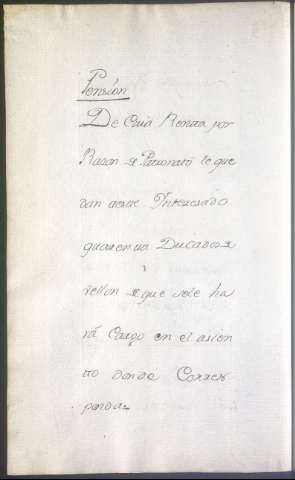 Pension
De Cuia Renta por
Razon de Patronato le que
dan aeste Interesado
quarenta Ducados de
vellon de que sele ha
rá Cargo en el asien
to donde Corres
ponda